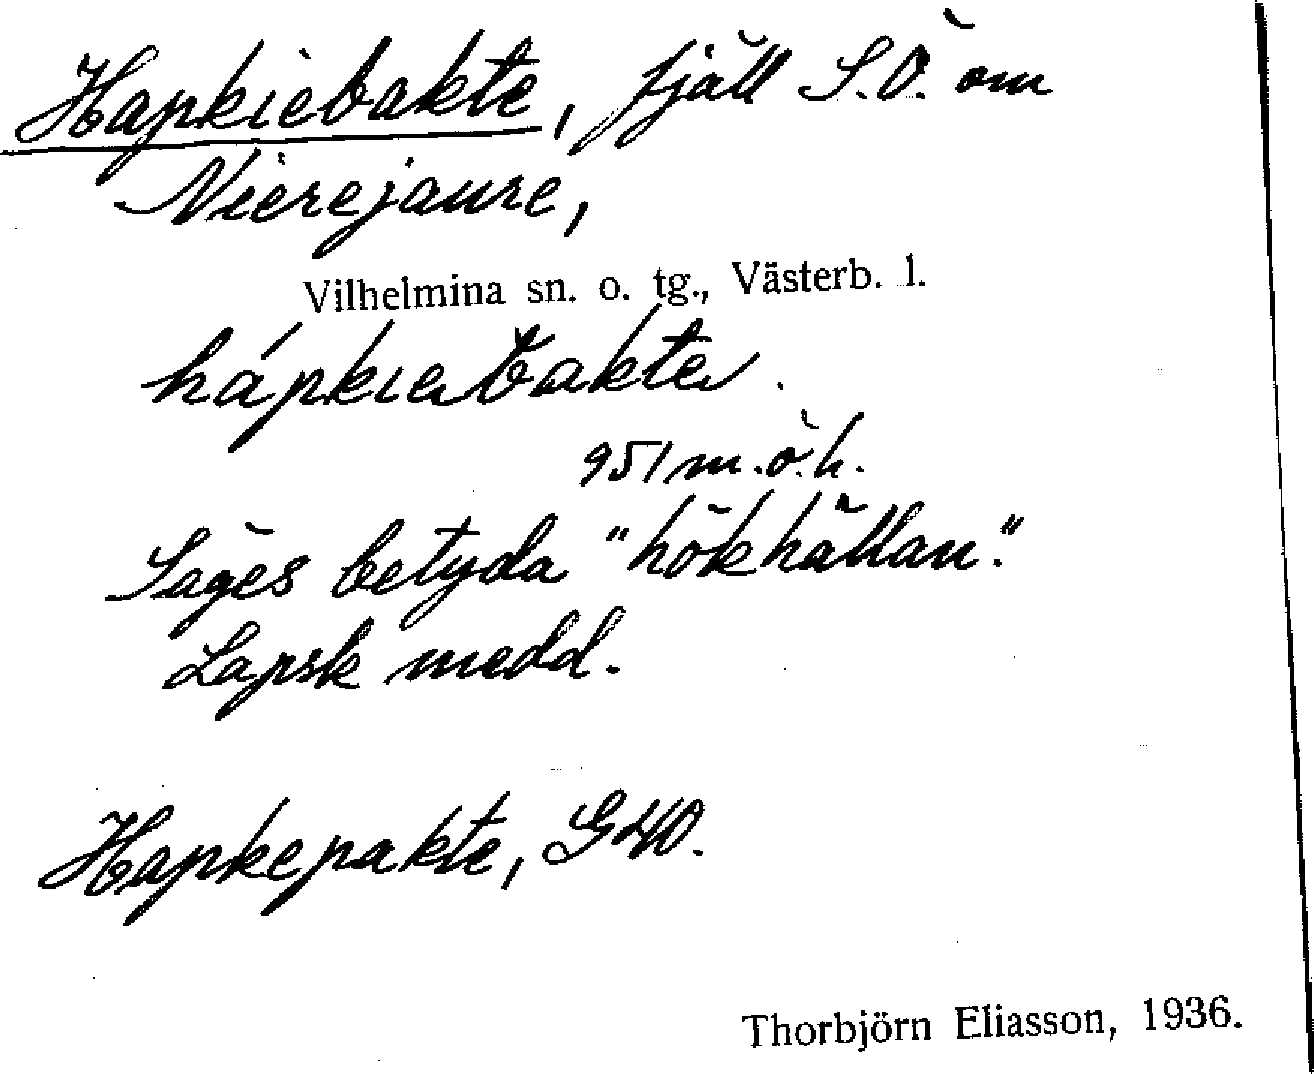 Hapkiebakte, fjäll S.Ö. om
Nierejaure,
Vilhelmina sn. o. tg., Västerb. l.
hápkiebakte.
951 m.ö.h.
Säges betyda "hökhällan".
Lapsk medd.
Hapkepakte, G40.
Thorbjörn Eliasson, 1936.